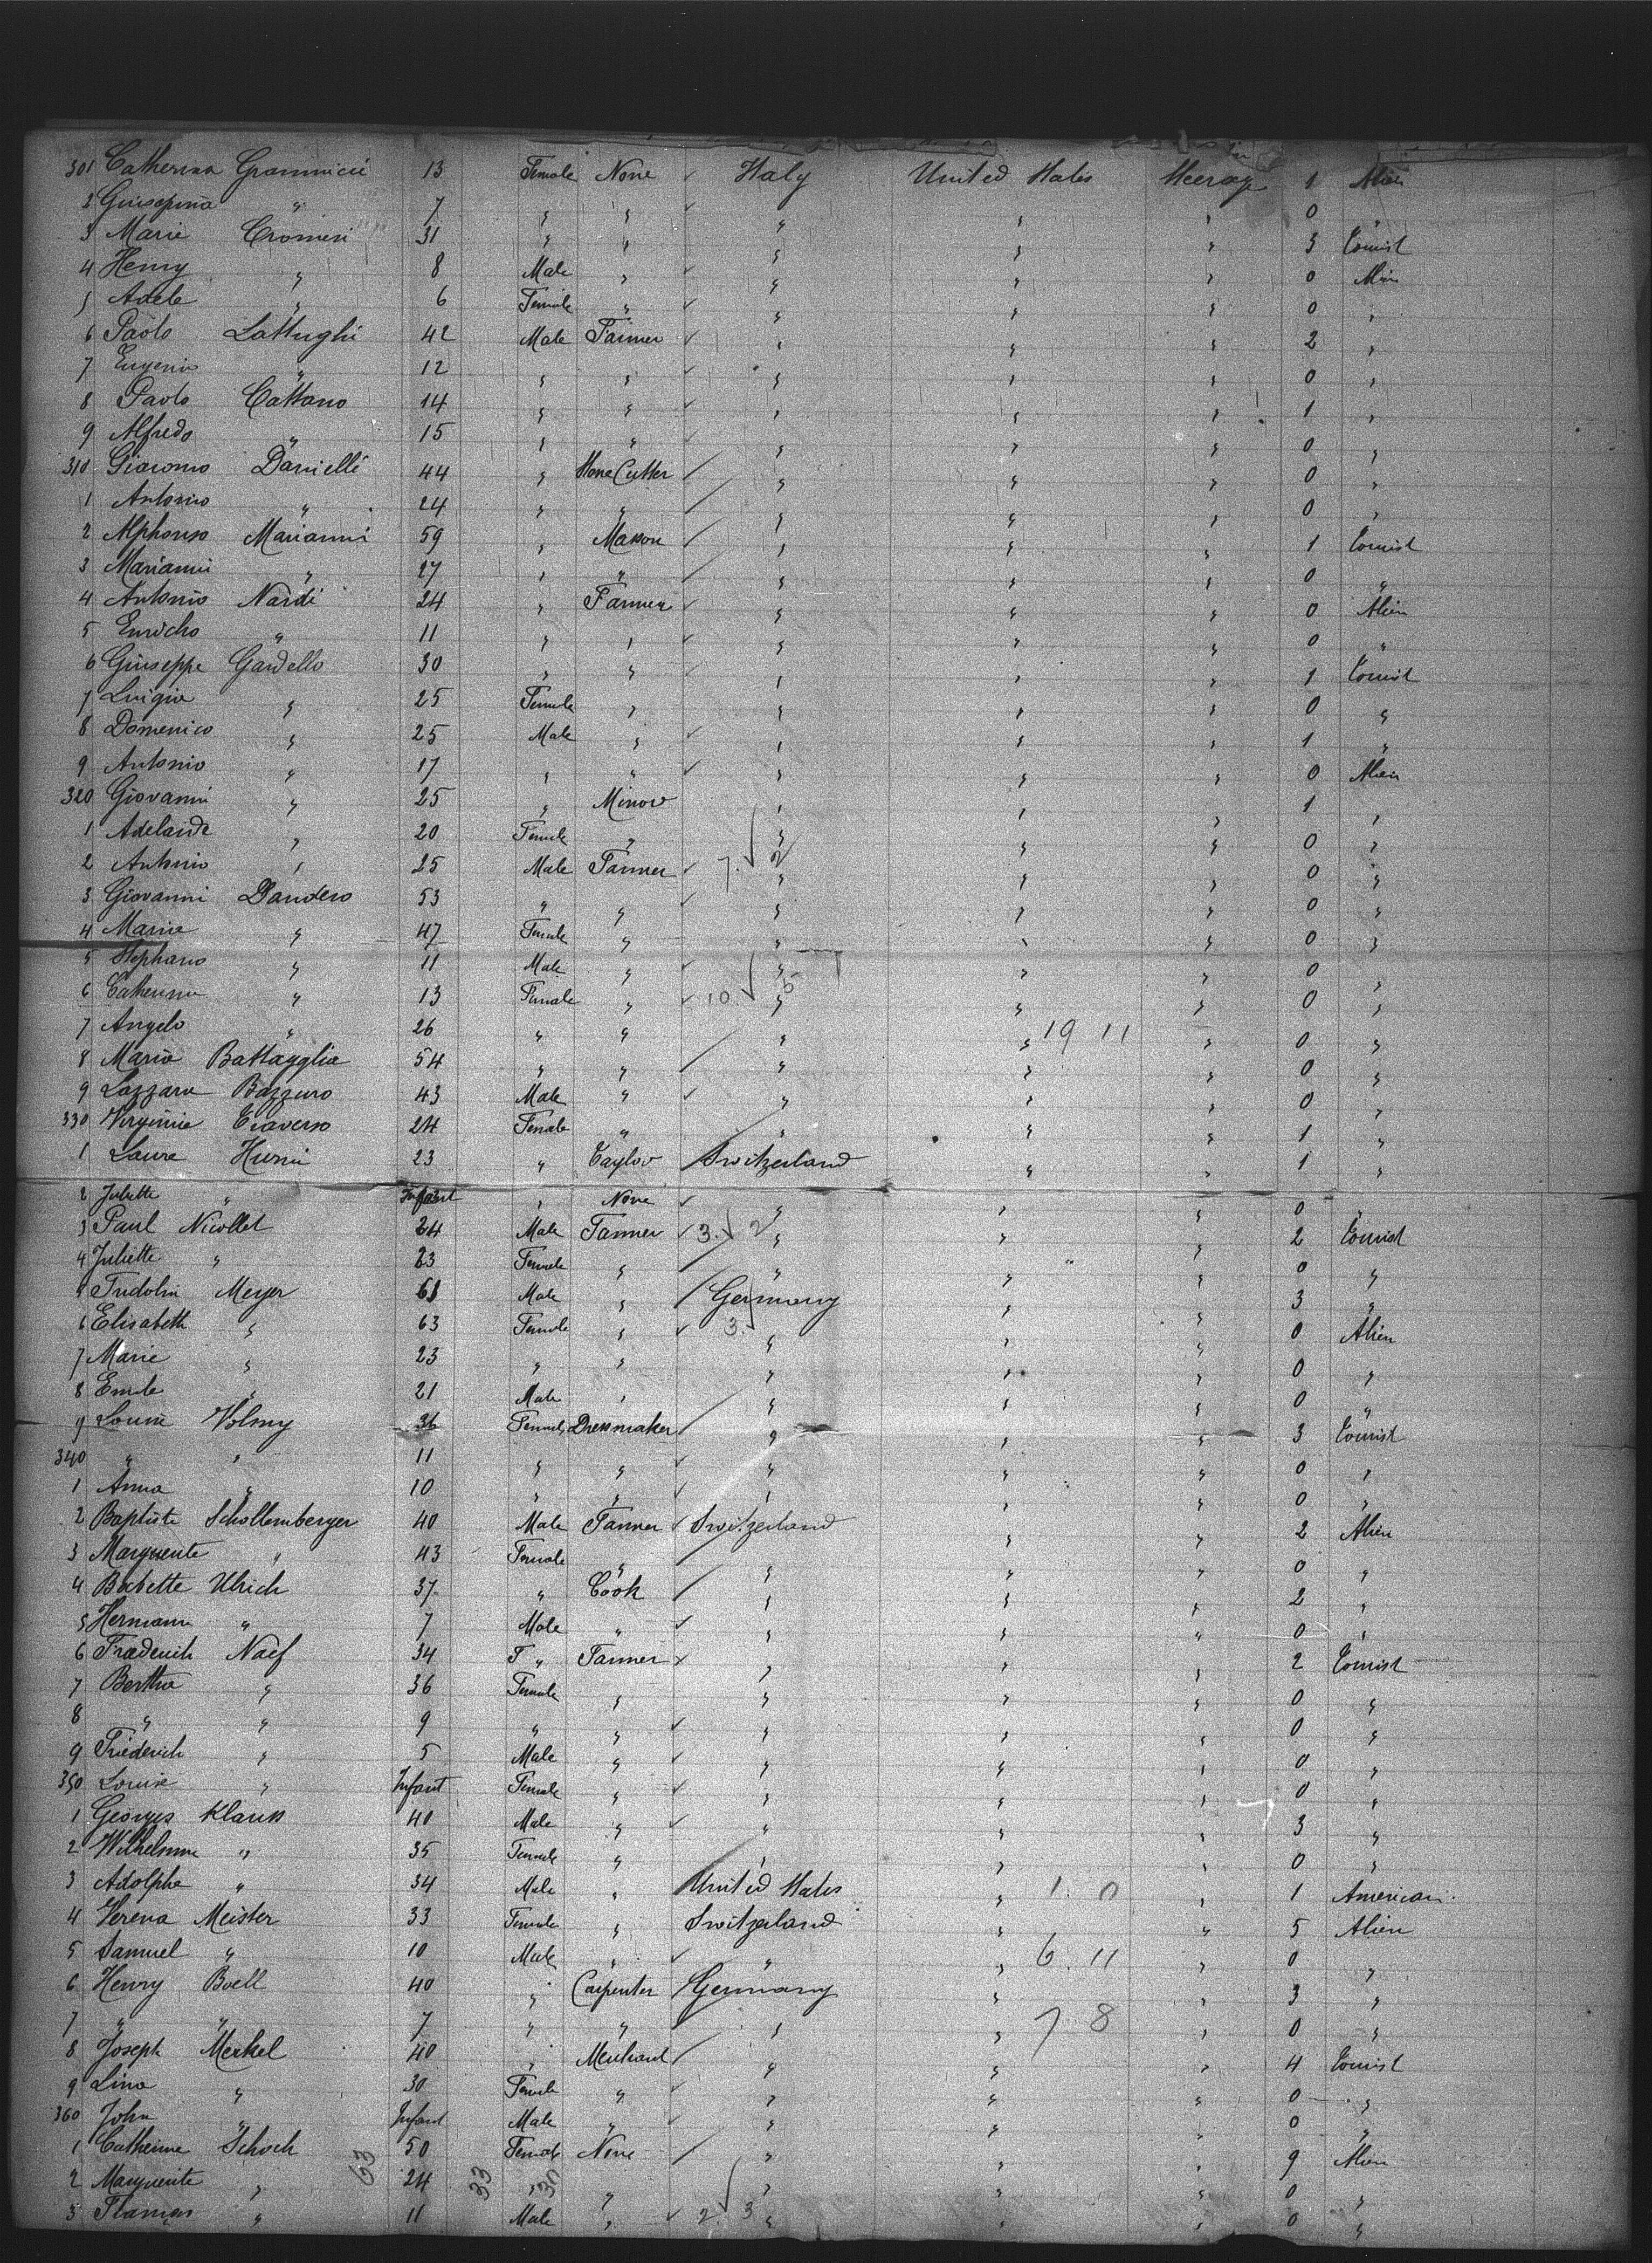 301 Catherina Grannicci 13 Female None Italy United States Steerage 1 Alien
2 Giuseppina " 7 " " " " " 0 "
3 Marie Cromesi 31 " " " " " 3 Tourist
4 Henry " 8 Male " " " " 0 Alien
5 Adele " 6 Female " " " " 0 "
6 Paolo Lattughi 42 Male Farmer " " " 2 "
7 Eugenio " 12 " " " " " 0 "
8 Paolo Cattano 14 " " " " " 1 "
9 Alfredo " 15 " " " " " 0 "
310 Giacomo Danielli 44 " Stone Cutter " " " 0 "
1 Antonio " 24 " " " " " 0 "
2 Alphonso Marianni 59 " Mason " " " 1 Tourist
3 Marianni " 27 " " " " " 0 "
4 Antonio Nardi 24 " Farmer " " " 0 Alien
5 Enricho " 11 " " " " " 0 "
6 Giuseppe Gardello 30 " " " " " 1 Tourist
7 Luigia " 25 Female " " " " 0 "
8 Domenico " 25 Male " " " " 1 "
9 Antonio " 17 " " " " " 0 Alien
320 Giovanni " 25 " Minor " " " 1 "
1 Adelaide " 20 Female " " " " 0 "
2 Antonio " 25 Male Farmer 7. 2 " " " 0 "
3 Giovanni Dandero 53 " " " " " 0 "
4 Marie " 47 Female " " " " 0 "
5 Stephano " 11 Male " " " " 0 "
6 Catherina " 13 Female " 10. 5 " " " 0 "
7 Angelo " 26 " " " " 19 11 " 0 "
8 Maria Battagglia 54 " " " " " 0 "
9 Lazzara Bazzuro 43 Male " " " " 0 "
330 Virginie Traverso 24 Female " " " " 1 "
1 Laure Hurni 23 " Taylor Switzerland " " 1 "
2 Juliette " Infant " None " " " 0 "
3 Paul Nicollet 24 Male Farmer 3. 2 " " " 2 Tourist
4 Juliette " 23 Female " " " " 0 "
5 Fridolin Meyer 61 Male " Germany " " 3 "
6 Elisabeth " 63 Female " 3. " " " 0 Alien
7 Marie " 23 " " " " " 0 "
8 Emile " 21 Male " " " " 0 "
9 Louise Volmy 36 Female Dressmaker " " " 3 Tourist
340 " " 11 " " " " " 0 "
1 Anna " 10 " " " " " 0 "
2 Baptiste Schollemberger 40 Male Farmer Switzerland " " 2 Alien
3 Marguerite " 43 Female " " " " 0 "
4 Babette Ulrich 37 " Cook " " " 2 "
5 Hermann " 7 Male " " " " 0 "
6 Frederich Naef 34 F " Farmer " " " 2 Tourist
7 Bertha " 36 Female " " " " 0 "
8 " " 9 " " " " " 0 "
9 Friederich " 5 Male " " " " 0 "
350 Louise " Infant Female " " " " 0 "
1 Georges Klauss 40 Male " " " " 3 "
2 Wilhelmine " 35 Female " " " " 0 "
3 Adolphe " 34 Male " United States " 1. 0 " 1 American
4 Verena Meister 33 Female " Switzerland " " 5 Alien
5 Samuel " 10 Male " " " 6. 11 " 0 "
6 Henry Boell 40 " Carpenter Germany " " 3 "
7 " " 7 " " " " 7 8 " 0 "
8 Joseph Merkel 40 " Merchant " " " 4 Tourist
9 Lina " 30 Female " " " " 0 "
360 John " Infant Male " " " " 0 "
1 Catherine Schoch 50 Female None " " " 9 Alien
2 Marguerite " 63 24 33 " 30 " " " " 0 "
3 Thomas " 11 Male " 2. 3 " " " 0 "